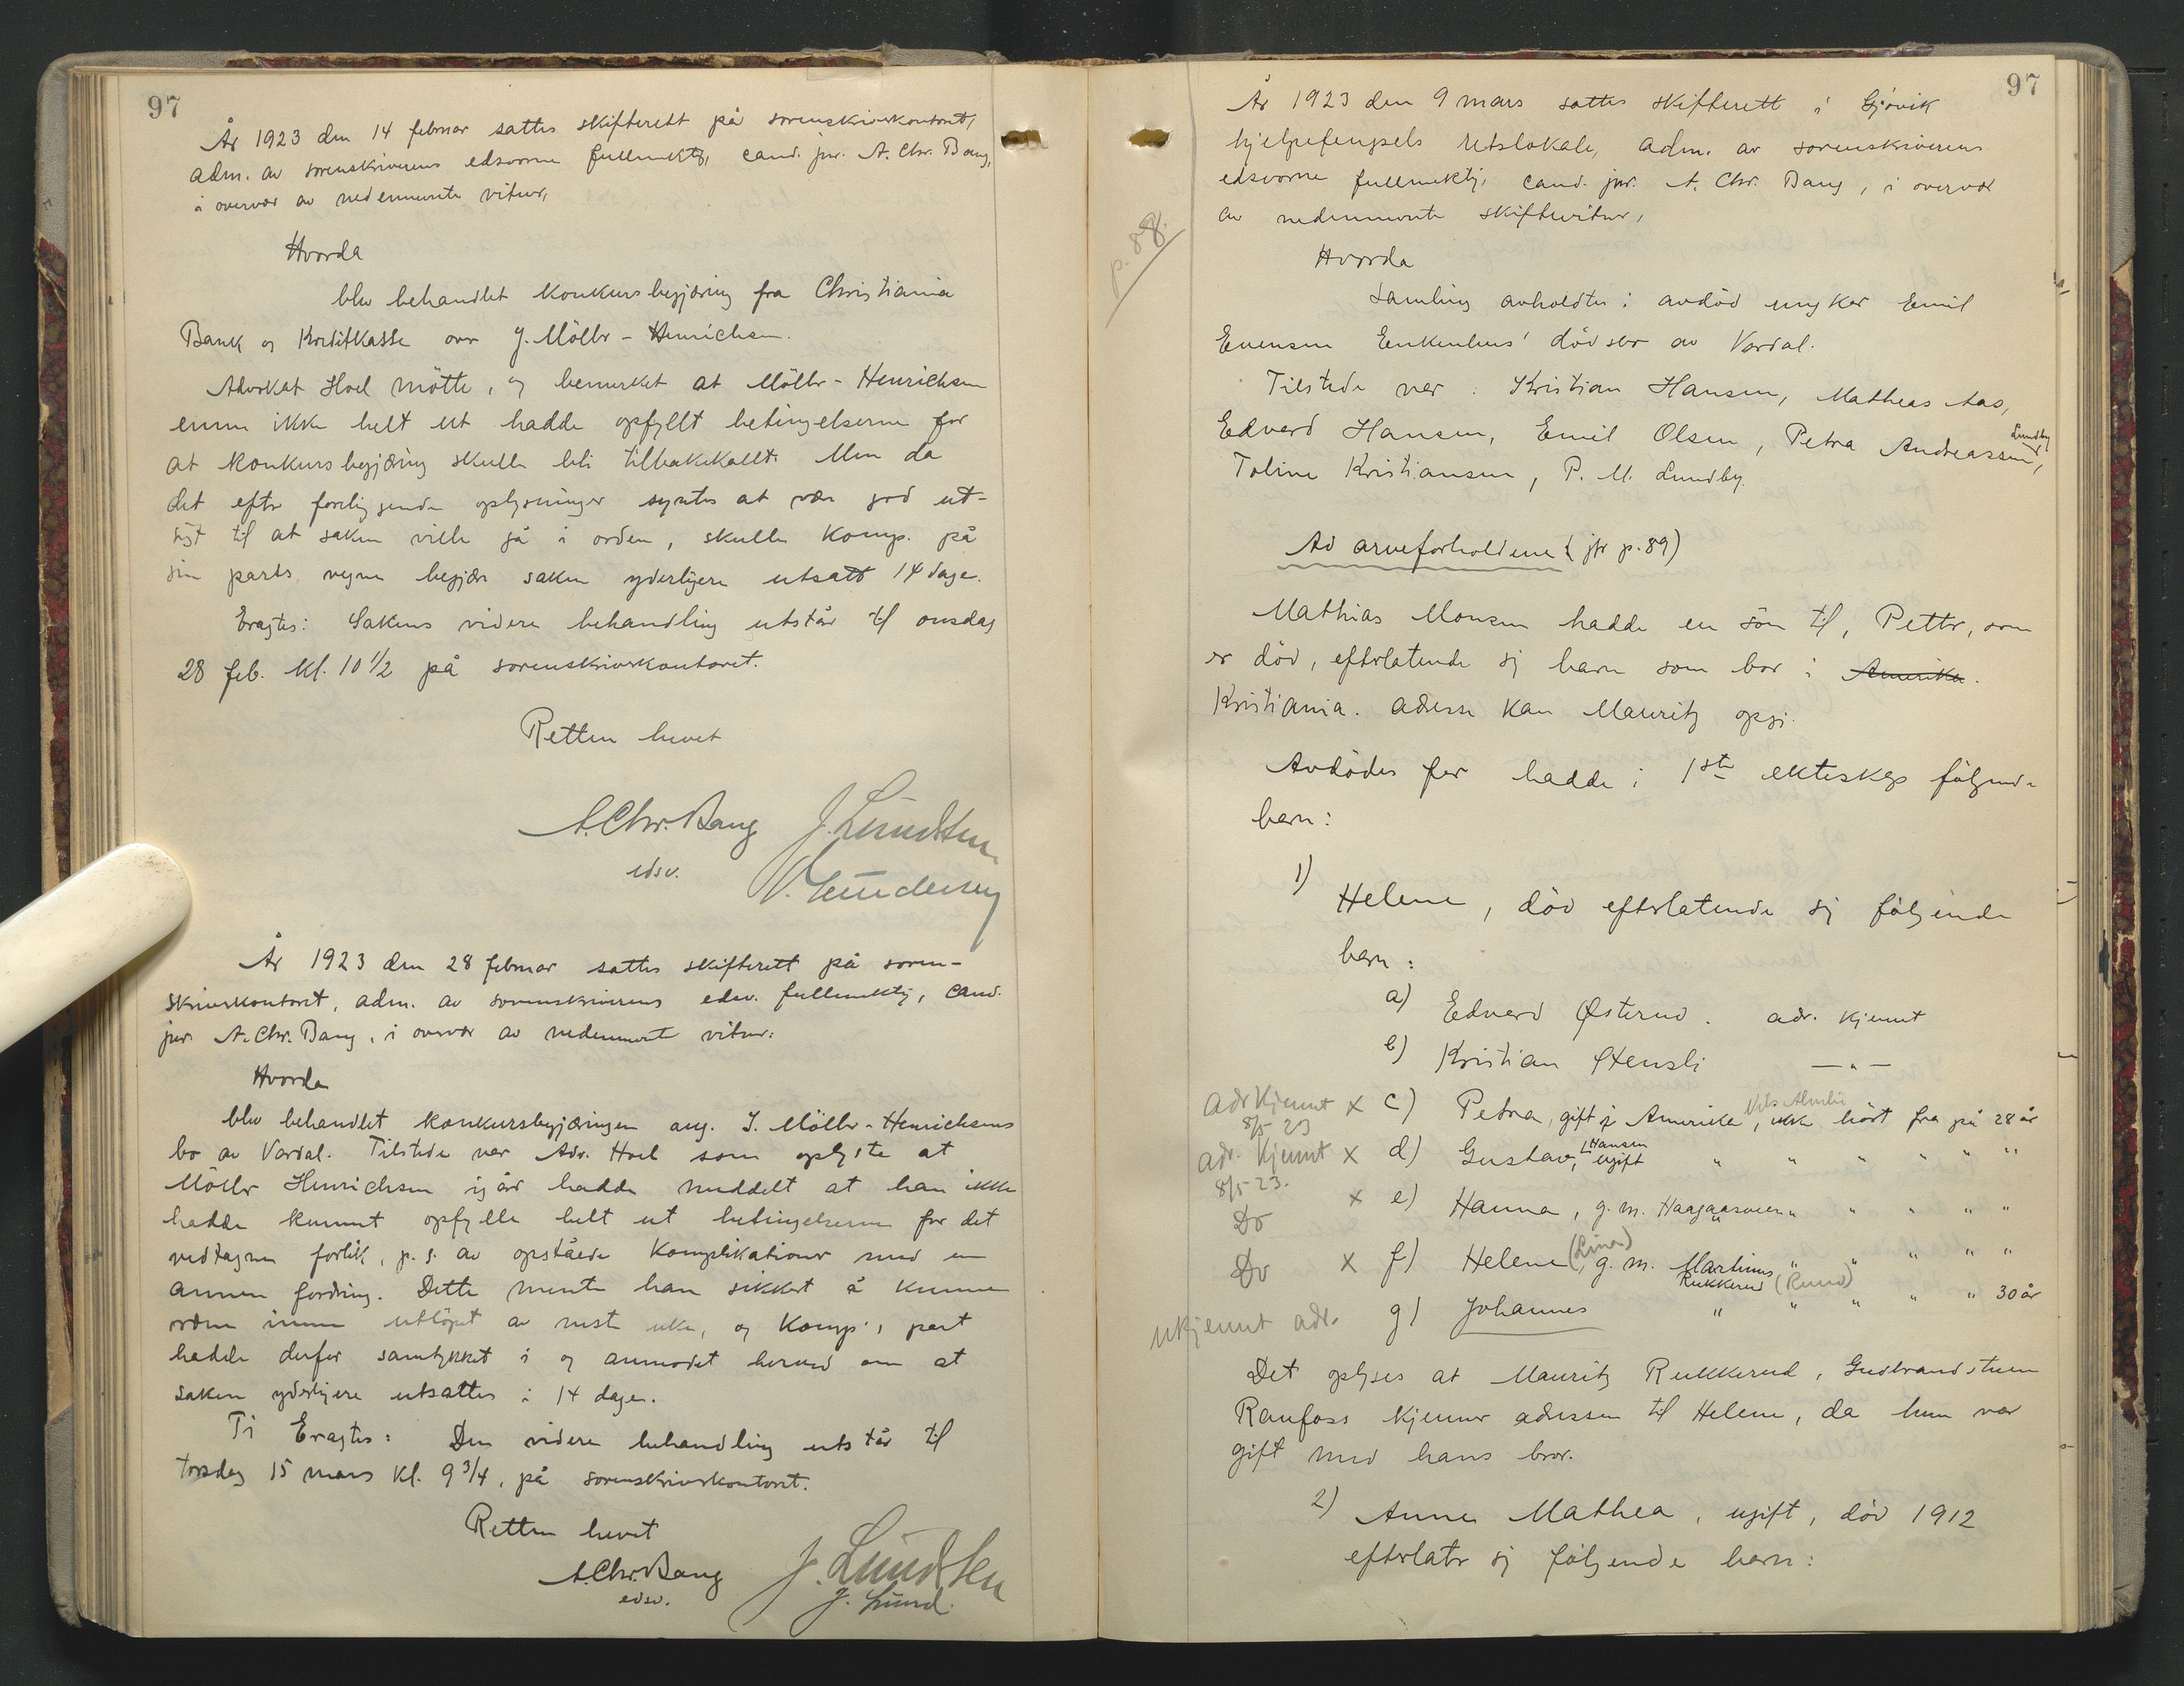 97
År 1923 den 14 februar sattes skifterett på sorenskriverkontoret,
adm. av sorenskriverens edsvorne fullmektig, cand. jur. A. Chr. Bang,
i overvær av nedennevnte vitner,
Hvorda
blev behandlet konkursbegjæring fra Christiania
Bank og Kreditkasse over J. Möller-Henrichsen.
Advokat Hoel møtte, og bemerket at Möller-Henrichsen
ennu ikke helt ut hadde opfyllt betingelserne for
at konkursbegjæring skulle bli tilbakekallt. Men da
det efter foreliggende oplysninger syntes at være god ut-
sigt til at saken ville gå i orden, skulle komp. på
sin parts vegne begjære saken yderligere utsatt 14 dage.
Eragtes: Sakens videre behandling utstår til onsdag
28 feb. kl. 10 1/2 på sorenskriverkontoret.
Retten hevet
A. Chr. Bang J. Lundsten
edsv.
År 1923 den 28 februar sattes skifterett på soren-
skriverkontoret, adm. av sorenskriverens edsv. fullmektig, cand.
jur. A. Chr. Bang, i overvær av nedennevnte vitner:
Hvorda
blev behandlet konkursbegjæringen ang. J. Möller-Henrichsens
bo av Vardal. Tilstede var Adv. Hoel som oplyste at
Möller Henrichsen igår hadde meddelt at han ikke
hadde kunnet opfylle helt ut betingelserne for det
vedtagne forlik, p. g. av opståede komplikationer med en
annen fordring. Dette mente han sikkert å kunne
ordne innen utløpet av neste uke, og komp's part
hadde derfor samtykket i og anmodet herved om at
saken yderligere utsattes i 14 dage.
Ti Eragtes: Den videre behandling utstår til
torsdag 15 mars kl. 9 3/4, på sorenskriverkontoret.
Retten hevet
A. Chr. Bang J. Lundsten
edsv. J. Lund.
97
År 1923 den 9 mars sattes skifterett i Gjøvik
hjelpefengsels retslokale, adm. av sorenskriverens
edsvorne fullmektig, cand. jur. A. Chr. Bang, i overvær
av nedennevnte skiftevitner,
p. 88.
Hvorda
Samling avholdtes i avdød ungkar Emil
Evensen Enkenhus' dødsbo av Vardal.
Tilstede var: Kristian Hansen, Matheas Aas,
Edvard Hansen, Emil Olsen, Petra Andreassen Lundby,
Toline Kristiansen, P. M. Lundby.
Ad arveforholdene (jfr p. 89)
Mathias Monsen hadde en søn til, Petter, som
er død, efterlatende sig barn som bor i Amerika.
Kristiania. Adresse kan Mauritz opgi.
Avdødes far hadde i 1ste ekteskap følgende
barn:
1)
Helene, død efterlatende sig følgende
barn:
a) Edvard Østerud. adr. kjennt
b) Kristian Stensli — „ —
Adr kjennt x c) Petra, gift i Amerika Nils Almlie, ikke hørt fra på 28 år
8/5 23
adr. kjennt x d) Gustav, Hansen ugift „ „ „ „ „ „
8/5 23.
Do x e) Hanna, g. m. Haagaasveen „ „ „ „ „
Do x f) Helene (Lina), g. m. Martinus „ „ „ „ „
Rukkerud (Ruud)
ukjennt adr. g) Johannes „ „ „ „ „ 30 år
Det oplyses at Mauritz Rukkerud, Gudbrandstuen
Raufoss kjenner adressen til Helene, da hun var
gift med hans bror.
2) Anne Mathea, ugift, død 1912
efterlater sig følgende barn: